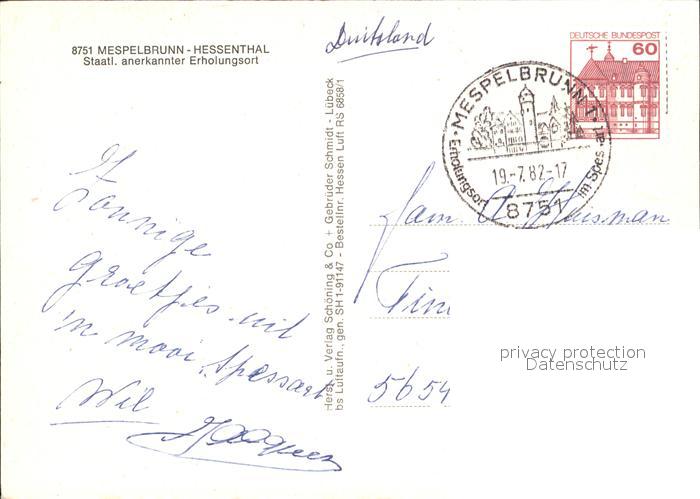 8751 MESPELBRUNN - HESSENTHAL
Staatl. anerkannter Erholungsort
Duitsland
DEUTSCHE BUNDESPOST
60
MESPELBRUNN 1
Erholungsort im Spessart
19.-7.82-17
8751
Herst. u. Verlag Schöning & Co + Gebrüder Schmidt - Lübeck
bs Luftaufn.: gen. SH 1-91147 - Bestellnr. Hessen Luft RS 6858/1
Zonnige
groetjes uit
'n mooi Spessart
Wil
Fam. A Huisman
5654
privacy protection
Datenschutz